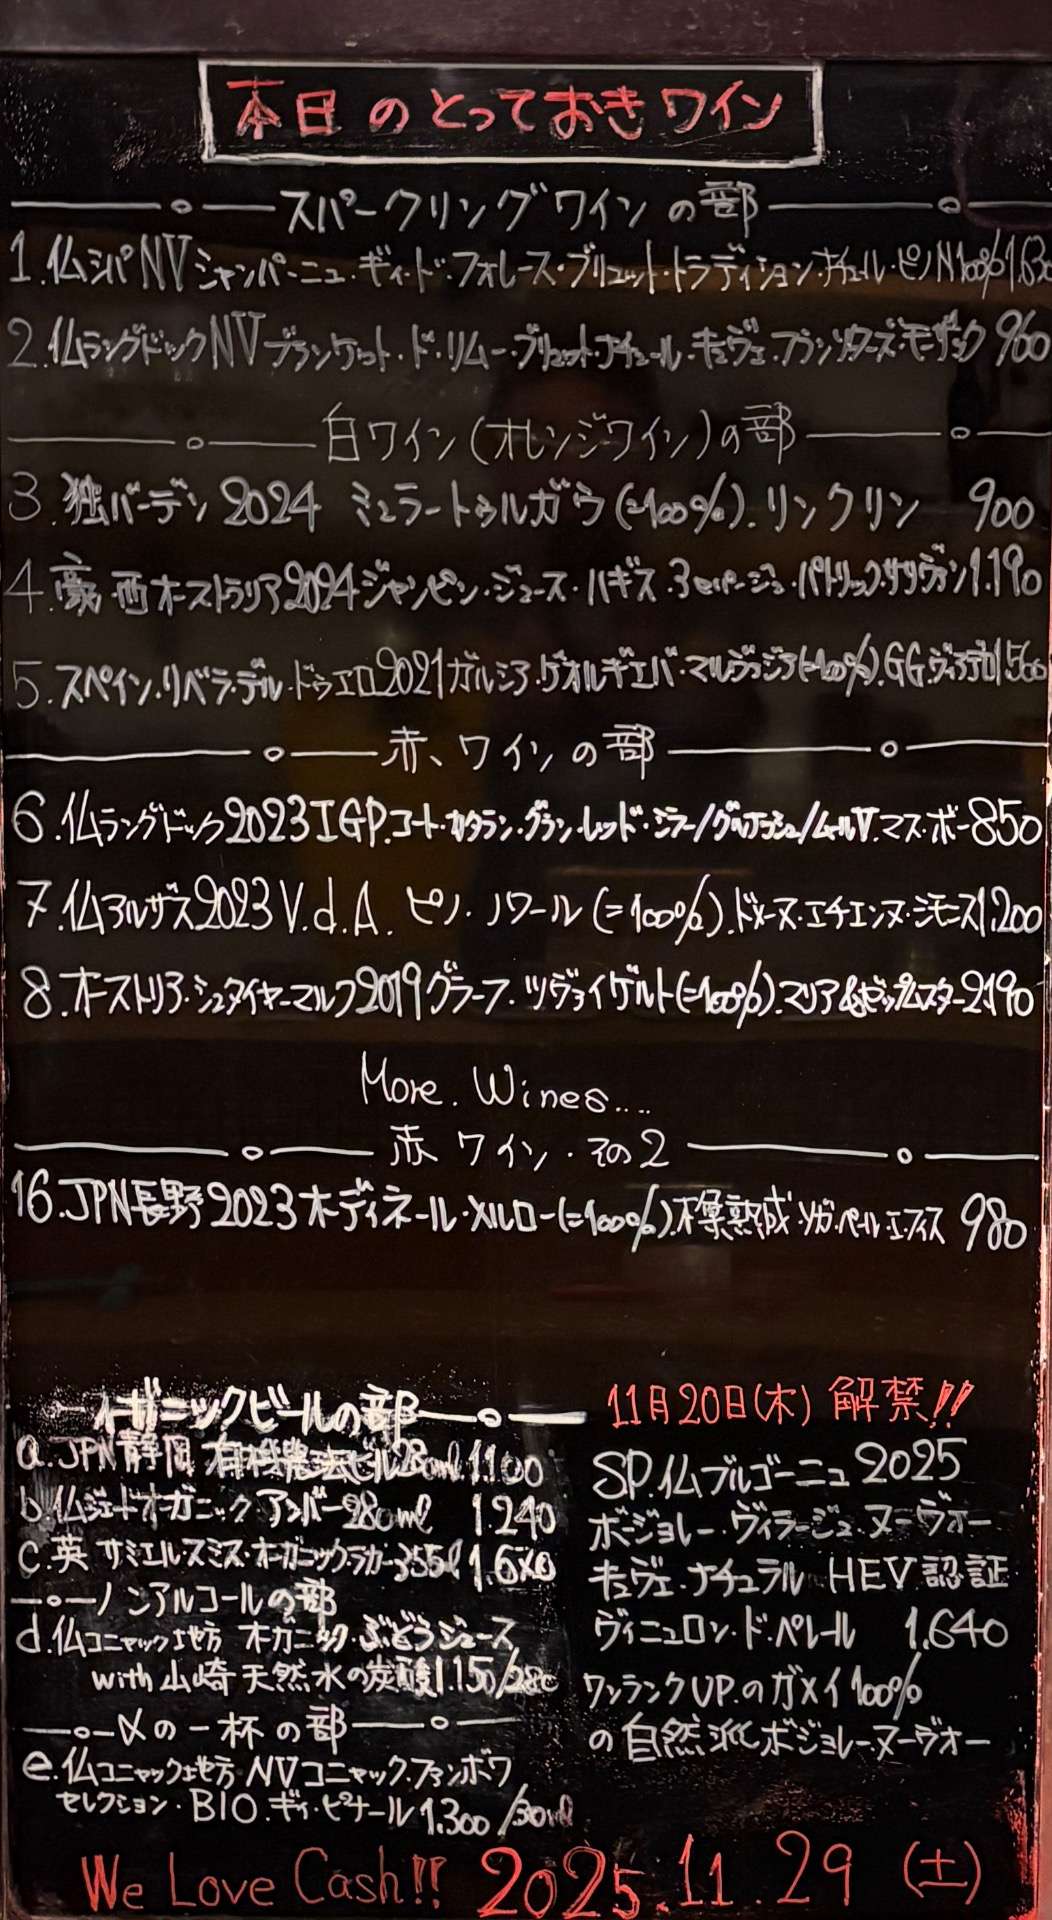 本日のとっておきワイン
スパークリングワインの部
1.仏シパNVシャンパーニュ・ギィ・ド・フォレース・ブリュット・トラディション・ナチュール・ピノN100%
2.仏ラングドックNVブランケット・ド・リムー・ブリュット・ナチュール・キュヴェ・フランソワーズ・モザック 960
白ワイン(オレンジワイン)の部
3.独バーデン2024 ミュラートゥルガウ(=100%).リンクリン 900
4.豪・西オーストラリア2024ジャンピン・ジュース・ハギス・パトリック・サリヴァン1.190
5.スペイン.リベラ・デル・ドゥエロ2021ガルシア・ゲオルギエバ・マルヴァジア(=100%).GG.ヴィアデロ1.500
赤ワインの部
6.仏ラングドック2023IGP.コート・カタラン・グラン・レッド・シラー/グルナッシュ/ムールV.マス・ボー850
7.仏アルザス2023V.d.A. ピノ・ノワール(=100%).ドメーヌ・エチエンヌ・シモニス1.200
8.オーストリア・シュタイヤーマルク2019グラーフ・ツヴァイゲルト(=100%).マリア&ゼップムスター2.190
More.Wines....
赤ワイン・その2
16.JPN長野2023オーディネール・メルロー(=100%).樽熟成・ソガ・ペール・エ・フィス 980
オーガニックビールの部
a.JPN静岡 有機農法ビール280ml1.100
b.仏ジェードオーガニック アンバー280ml 1.240
c.英 サミエルスミス・オーガニックラガー355l
ノンアルコールの部
d.仏コニャック地方 オーガニック・ぶどうジュース
with山崎 天然水の炭酸1.150/280
〆の一杯の部
e.仏コニャック地方NVコニャック・ファンボワ
セレクション・BIO.ギィ・ピナール1.300/30ml
11月20日(木)解禁!!
SP.仏ブルゴーニュ2025
ボージョレー・ヴィラージュ・ヌーヴォー
キュヴェ・ナチュラル HEV認証
ヴィニュロン・ド・ペレール 1.640
ワンランクUP.のガメイ100%
の自然派ボジョレーヌーヴォー
We Love Cash!! 2025.11.29(土)